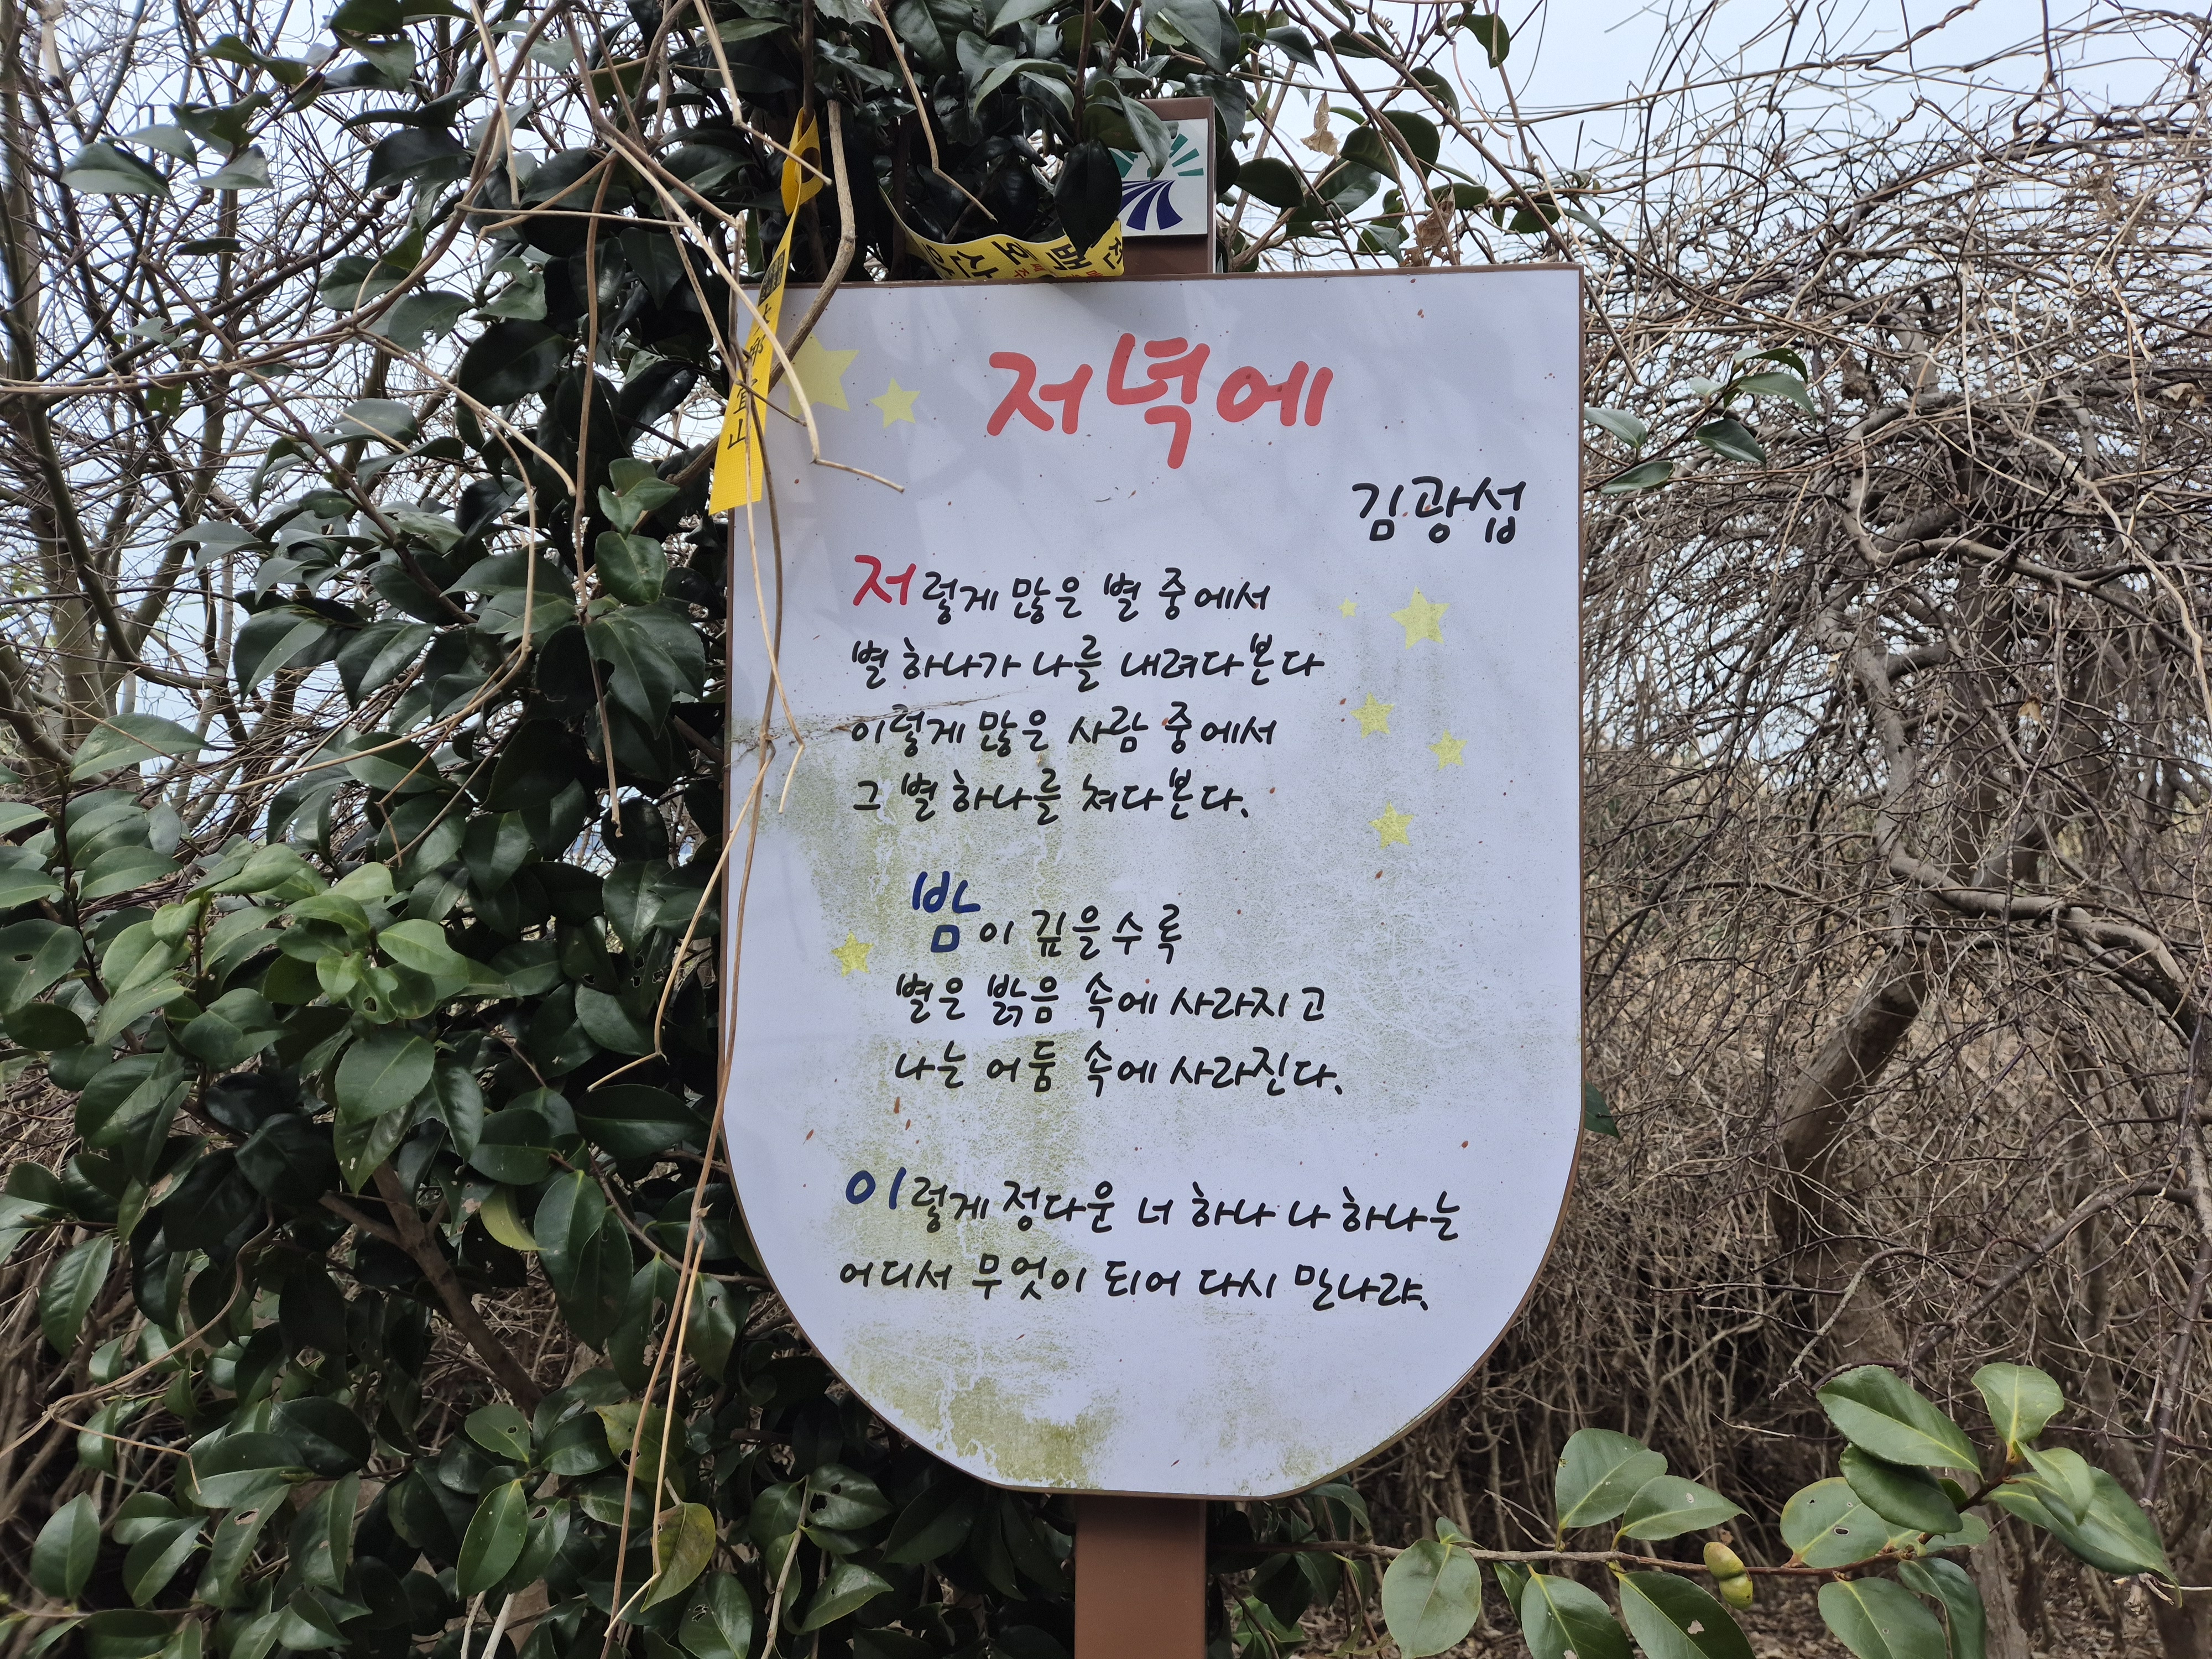 저녁에
김광섭
저렇게 많은 별 중에서
별 하나가 나를 내려다본다
이렇게 많은 사람 중에서
그 별 하나를 쳐다본다.
밤이 깊을수록
별은 밝음 속에 사라지고
나는 어둠 속에 사라진다.
이렇게 정다운 너 하나 나 하나는
어디서 무엇이 되어 다시 만나랴.